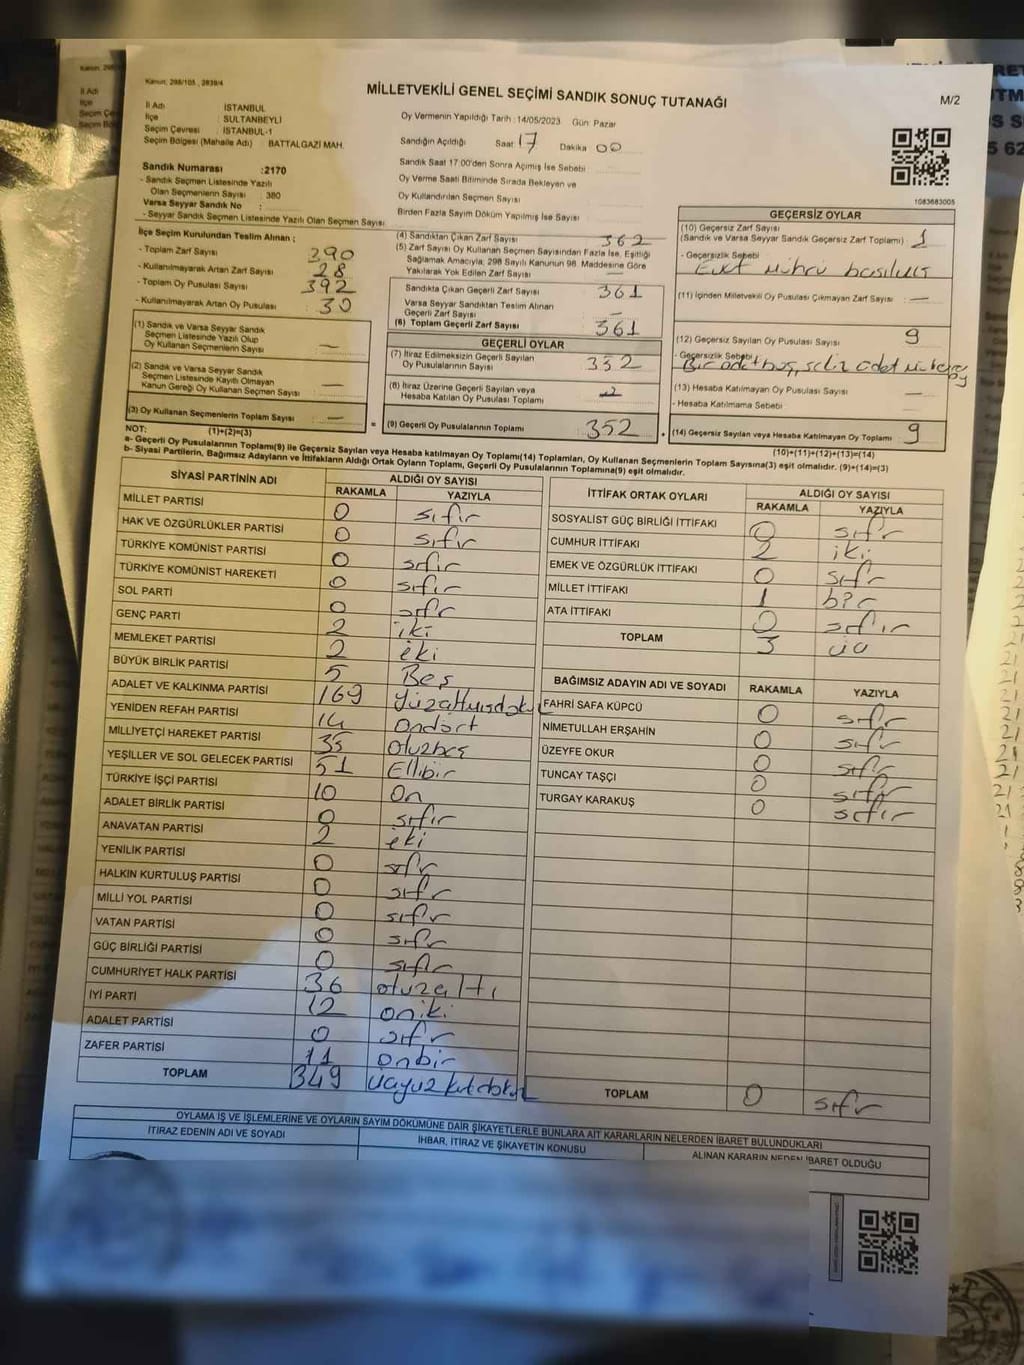 Kanun: 298/105 , 2839/4
MİLLETVEKİLİ GENEL SEÇİMİ SANDIK SONUÇ TUTANAĞI
M/2
İl Adı : İSTANBUL
İlçe : SULTANBEYLİ
Seçim Çevresi : İSTANBUL-1
Seçim Bölgesi (Mahalle Adı) : BATTALGAZİ MAH.
Sandık Numarası :2170
- Sandık Seçmen Listesinde Yazılı
Olan Seçmenlerin Sayısı : 380
Varsa Seyyar Sandık No :
- Seyyar Sandık Seçmen Listesinde Yazılı Olan Seçmen Sayısı
Oy Vermenin Yapıldığı Tarih : 14/05/2023 Gün: Pazar
Sandığın Açıldığı Saat 17 Dakika 00
Sandık Saat 17:00'den Sonra Açılmış İse Sebebi
Oy Verme Saati Bitiminde Sırada Bekleyen ve
Oy Kullandırılan Seçmen Sayısı
Birden Fazla Sayım Döküm Yapılmış İse Sayısı
1083683005
İlçe Seçim Kurulundan Teslim Alınan ;
- Toplam Zarf Sayısı 390
- Kullanılmayarak Artan Zarf Sayısı 28
- Toplam Oy Pusulası Sayısı 392
- Kullanılmayarak Artan Oy Pusulası 30
(1) Sandık ve Varsa Seyyar Sandık
Seçmen Listesinde Yazılı Olup
Oy Kullanan Seçmenlerin Sayısı —
(2) Sandık ve Varsa Seyyar Sandık
Seçmen Listesinde Kayıtlı Olmayan
Kanun Gereği Oy Kullanan Seçmen Sayısı —
(3) Oy Kullanan Seçmenlerin Toplam Sayısı —
(4) Sandıktan Çıkan Zarf Sayısı 362
(5) Zarf Sayısı Oy Kullanan Seçmen Sayısından Fazla İse, Eşitliği
Sağlamak Amacıyla, 298 Sayılı Kanunun 98. Maddesine Göre
Yakılarak Yok Edilen Zarf Sayısı —
Sandıkta Çıkan Geçerli Zarf Sayısı 361
Varsa Seyyar Sandıktan Teslim Alınan
Geçerli Zarf Sayısı —
(6) Toplam Geçerli Zarf Sayısı 361
GEÇERLİ OYLAR
(7) İtiraz Edilmeksizin Geçerli Sayılan
Oy Pusulalarının Toplamı 352
(8) İtiraz Üzerine Geçerli Sayılan veya
Hesaba Katılan Oy Pusulası Toplamı
(9) Geçerli Oy Pusulalarının Toplamı 352
GEÇERSİZ OYLAR
(10) Geçersiz Zarf Sayısı
(Sandık ve Varsa Seyyar Sandık Geçersiz Zarf Toplamı) : 1
- Geçersizlik Sebebi
Evet mührü basılmış
(11) İçinden Milletvekili Oy Pusulası Çıkmayan Zarf Sayısı : —
(12) Geçersiz Sayılan Oy Pusulası Sayısı 9
- Geçersizlik Sebebi
Bir adet boş, sekiz adet
(13) Hesaba Katılmayan Oy Pusulası Sayısı —
- Hesaba Katılmama Sebebi
(14) Geçersiz Sayılan veya Hesaba Katılmayan Oy Toplamı 9
NOT: (1)+(2)=(3) (10)+(11)+(12)+(13)=(14)
a- Geçerli Oy Pusulalarının Toplamı(9) ile Geçersiz Sayılan veya Hesaba katılmayan Oy Toplamı(14) Toplamları, Oy Kullanan Seçmenlerin Toplam Sayısına(3) eşit olmalıdır. (9)+(14)=(3)
b- Siyasi Partilerin, Bağımsız Adayların ve İttifakların Aldığı Ortak Oyların Toplamı, Geçerli Oy Pusulalarının Toplamına(9) eşit olmalıdır.
SİYASİ PARTİNİN ADI ALDIĞI OY SAYISI
RAKAMLA YAZIYLA
MİLLET PARTİSİ 0 sıfır
HAK VE ÖZGÜRLÜKLER PARTİSİ 0 sıfır
TÜRKİYE KOMÜNİST PARTİSİ 0 sıfır
TÜRKİYE KOMÜNİST HAREKETİ 0 sıfır
SOL PARTİ 0 sıfır
GENÇ PARTİ 2 iki
MEMLEKET PARTİSİ 2 iki
BÜYÜK BİRLİK PARTİSİ 5 Beş
ADALET VE KALKINMA PARTİSİ 169 Yüzaltmışdokuz
YENİDEN REFAH PARTİSİ 14 Ondört
MİLLİYETÇİ HAREKET PARTİSİ 35 Otuzbeş
YEŞİLLER VE SOL GELECEK PARTİSİ 51 Ellibir
TÜRKİYE İŞÇİ PARTİSİ 10 On
ADALET BİRLİK PARTİSİ 0 sıfır
ANAVATAN PARTİSİ 2 iki
YENİLİK PARTİSİ 0 sıfır
HALKIN KURTULUŞ PARTİSİ 0 sıfır
MİLLİ YOL PARTİSİ 0 sıfır
VATAN PARTİSİ 0 sıfır
GÜÇ BİRLİĞİ PARTİSİ 0 sıfır
CUMHURİYET HALK PARTİSİ 36 otuzaltı
İYİ PARTİ 12 oniki
ADALET PARTİSİ 0 sıfır
ZAFER PARTİSİ 11 onbir
TOPLAM 349 üçyüzkırkdokuz
İTTİFAK ORTAK OYLARI ALDIĞI OY SAYISI
RAKAMLA YAZIYLA
SOSYALİST GÜÇ BİRLİĞİ İTTİFAKI 0 sıfır
CUMHUR İTTİFAKI 2 iki
EMEK VE ÖZGÜRLÜK İTTİFAKI 0 sıfır
MİLLET İTTİFAKI 1 bir
ATA İTTİFAKI 0 sıfır
TOPLAM 3 üç
BAĞIMSIZ ADAYIN ADI VE SOYADI RAKAMLA YAZIYLA
FAHRİ SAFA KÜPCÜ 0 sıfır
NİMETULLAH ERŞAHİN 0 sıfır
ÜZEYFE OKUR 0 sıfır
TUNCAY TAŞÇI 0 sıfır
TURGAY KARAKUŞ 0 sıfır
TOPLAM 0 sıfır
OYLAMA İŞ VE İŞLEMLERİNE VE OYLARIN SAYIM DÖKÜMÜNE DAİR ŞİKAYETLERLE BUNLARA AİT KARARLARIN NELERDEN İBARET BULUNDUKLARI
İTİRAZ EDENİN ADI VE SOYADI İHBAR, İTİRAZ VE ŞİKAYETİN KONUSU ALINAN KARARIN NEDEN İBARET OLDUĞU